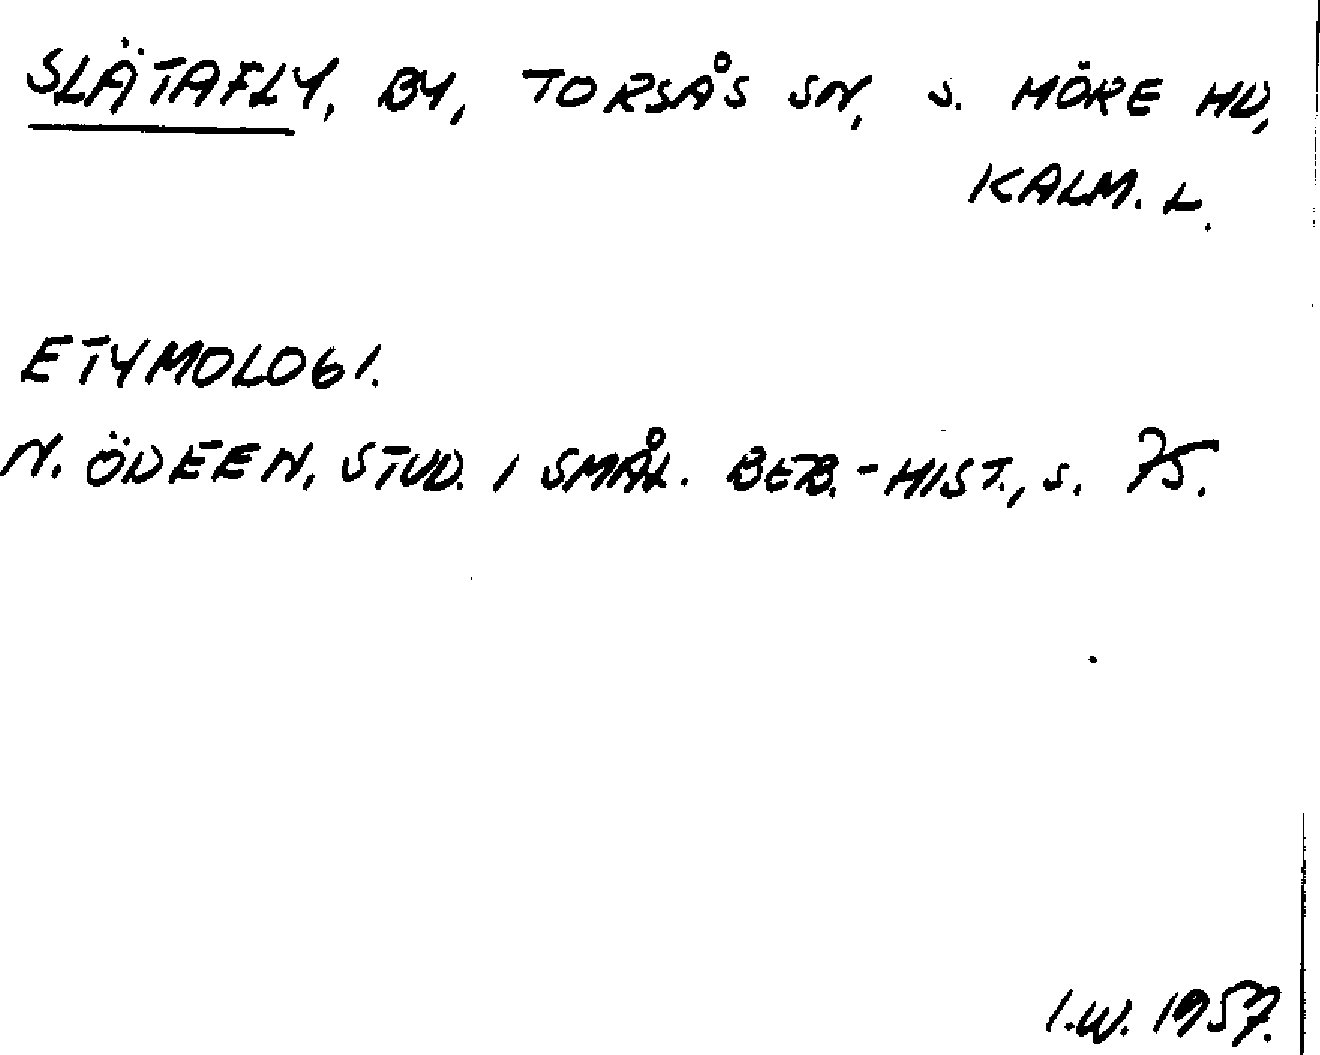 SLÄTAFLY, BY, TORSÅS SN, S. MÖRE HD,
KALM. L.
ETYMOLOGI.
N. ÖDEEN, STUD. I SMÅL. BEB.-HIST., S. 75.
I.W. 1957.